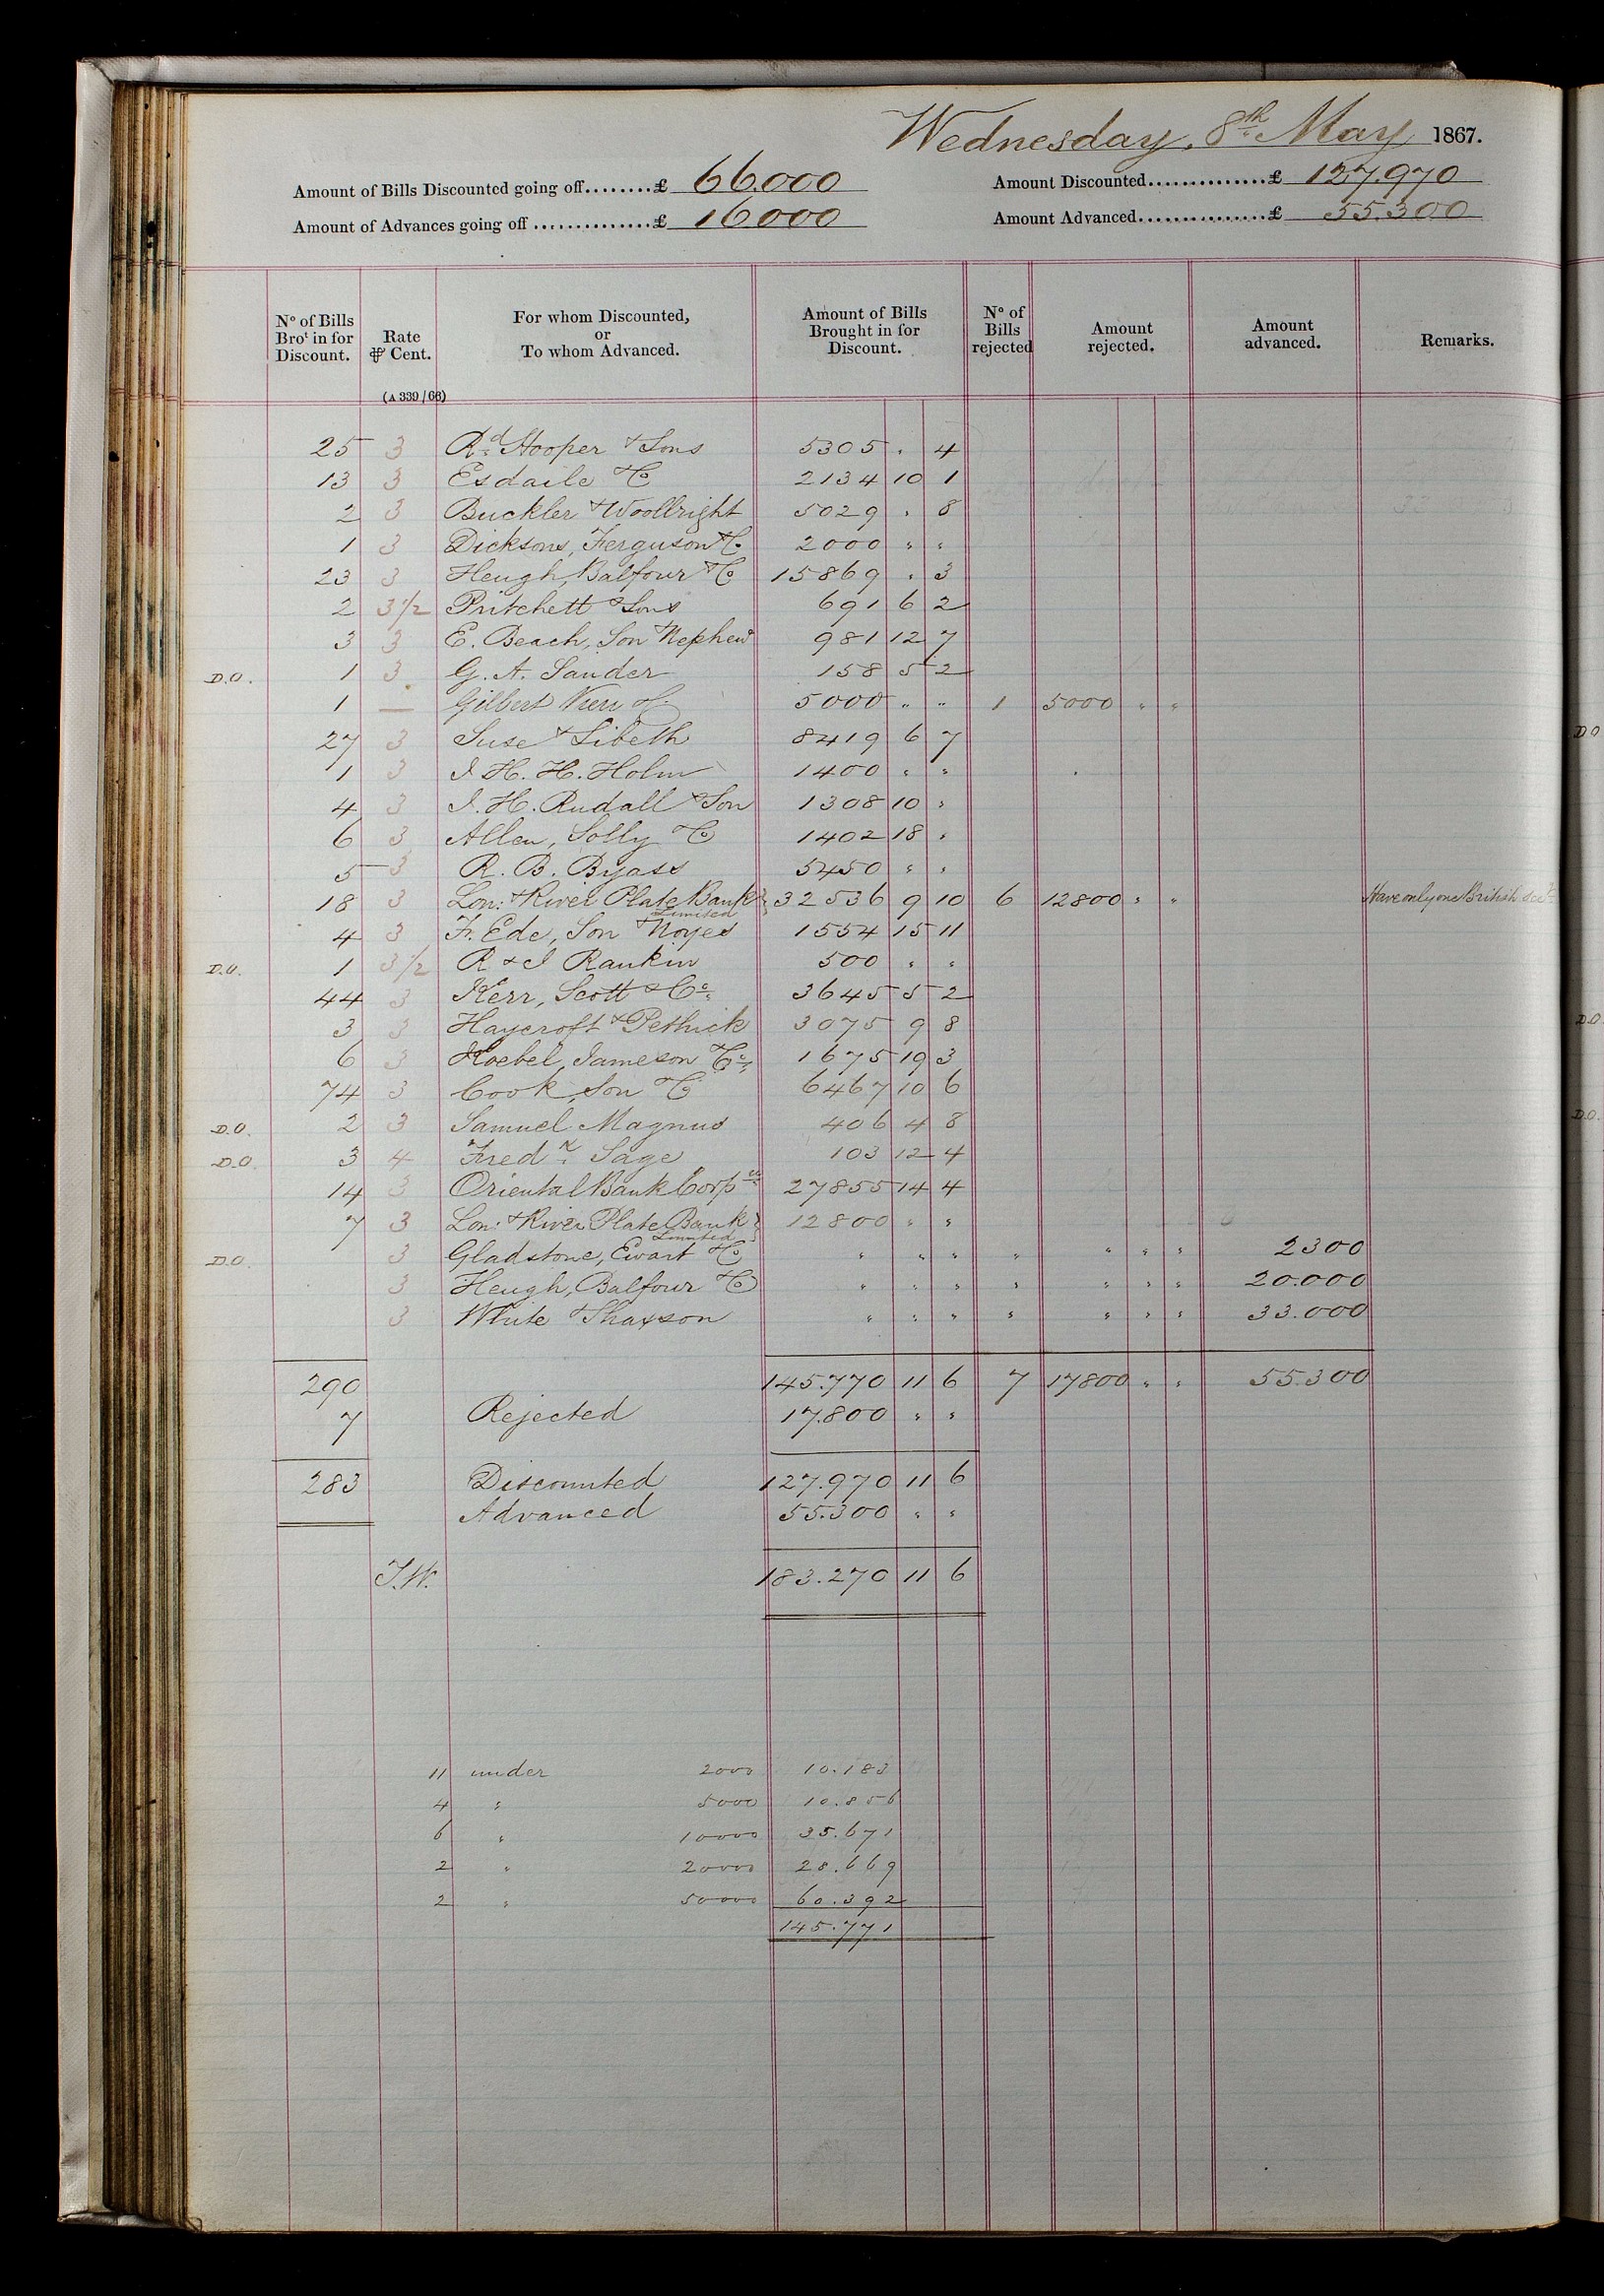 Wednesday, 8th May 1867.
Amount of Bills Discounted going off........£ 66.000 Amount Discounted...............£ 127.970
Amount of Advances going off ..............£ 16.000 Amount Advanced................£ 55.300
No of Bills Brot in for Discount. Rate ⅌ Cent. For whom Discounted, or To whom Advanced. Amount of Bills Brought in for Discount. No of Bills rejected Amount rejected. Amount advanced. Remarks.
(A 339/66)
25 3 Rd Hooper & Sons 5305 " 4
13 3 Esdaile & Co 2134 10 1
2 3 Buckler & Woollright 5029 " 8
1 3 Dicksons, Ferguson & Co 2000 " "
23 3 Heugh, Balfour & Co 15869 " 3
2 3 1/2 Pritchett & Sons 691 6 2
3 3 E. Beach, Son & Nephew 981 12 7
D.O. 1 3 G. A. Sander 158 5 2
1 — Gilbert 5000 " " 1 5000 " "
27 3 Suse & Sibeth 8419 6 7
1 3 J. H. H. Holm 1400 " "
4 3 J. H. Rudall & Son 1308 10 "
6 3 Allen, Solly & Co 1402 18 "
5 3 R. B. Byass 5450 " "
18 3 Lon: & River Plate Bank Limited } 32536 9 10 6 12800 " " Have only one British
4 3 Fr. Ede, Son & Noyes 1554 15 11
D.O. 1 3 1/2 R & J Rankin 500 " "
44 3 Kerr, Scott & Co. 3645 5 2
3 3 Haycroft & Pethick 3075 9 8
6 3 Koebel, Jameson & Co. 1675 19 3
74 3 Cook, Son & Co 6467 10 6
D.O. 2 3 Samuel Magnus 406 4 8
D.O. 3 4 Fredk Sage 103 12 4
14 3 Oriental Bank Corpon 27855 14 4
7 3 Lon: & River Plate Bank Limited } 12800 " "
D.O. 3 Gladstone, Ewart & Co " " " " " " " 2300
3 Heugh, Balfour & Co " " " " " " " 20.000
3 White & Shaxson " " " " " " " 33.000
290 145.770 11 6 7 17800 " " 55.300
7 Rejected 17.800 " "
283 Discounted 127.970 11 6
Advanced 55.300 " "
J.W. 183.270 11 6
11 under 2000 10.183
4 " 5000 10.856
6 " 10000 35.671
2 " 20000 28.669
2 " 50000 60.392
145.771
D.O
D.O
D.O.